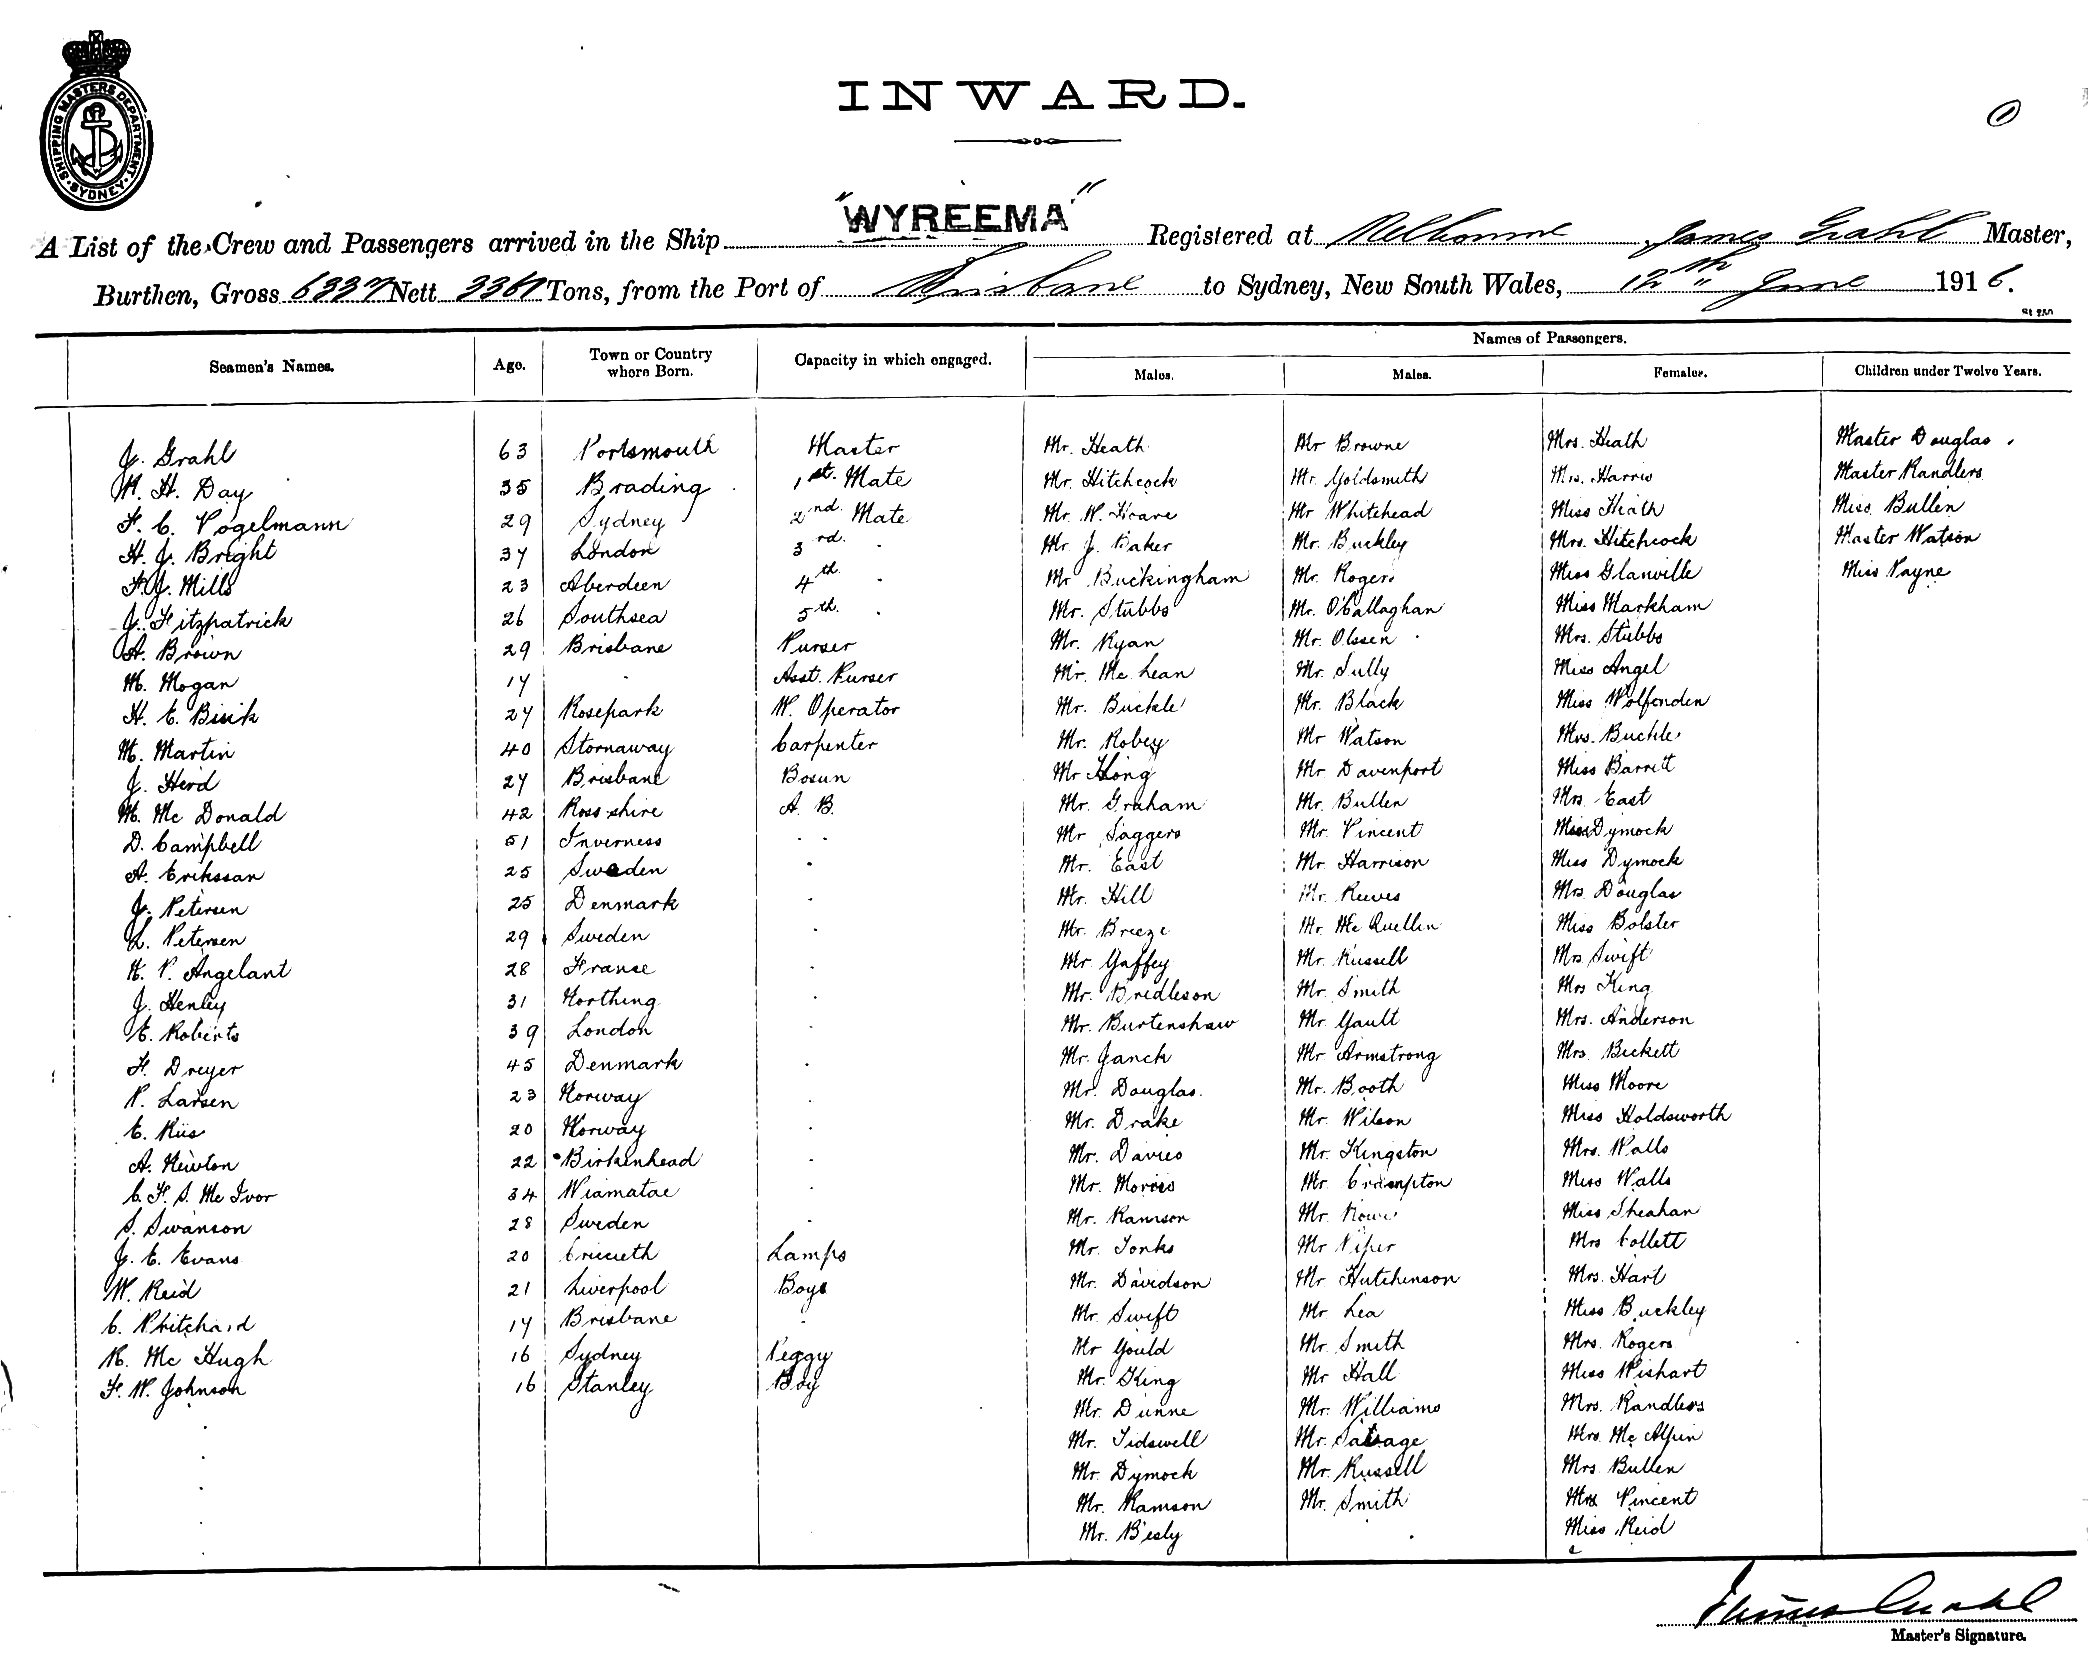 SHIPPING MASTERS DEPARTMENT
SYDNEY
INWARD.
1
A List of the Crew and Passengers arrived in the Ship "WYREEMA" Registered at Melbourne James Grahl Master,
Burthen, Gross 6337 Nett 3361 Tons, from the Port of Brisbane to Sydney, New South Wales, 12th June 1916.
Names of Passengers.
Seamen's Names. Age. Town or Country where Born. Capacity in which engaged. Males. Males. Females. Children under Twelve Years.
J. Grahl 63 Portsmouth Master Mr. Heath Mr Browne Mrs. Heath Master Douglas
W. H. Day 35 Brading 1st. Mate Mr. Hitchcock Mr. Goldsmith Mrs. Harris Master Randlers
F. C. Vogelmann 29 Sydney 2nd. Mate Mr. W. Hoare Mr Whitehead Miss Heath Miss Bullen
H. J. Bright 37 London 3rd. Mr. J. Baker Mr. Buckley Mrs. Hitchcock Master Watson
F. J. Mills 23 Aberdeen 4th. Mr Buckingham Mr. Rogers Miss Glanville Miss Payne
J. Fitzpatrick 26 Southsea 5th. Mr. Stubbs Mr. O'Callaghan Miss Markham
A. Brown 29 Brisbane Purser Mr. Ryan Mr. Olsen Mrs. Stubbs
M. Mogan 17 Asst. Purser Mr. Mc Lean Mr. Sully Miss Angel
H. C. 27 Rosepark W. Operator Mr. Buckle Mr. Black Miss Wolfenden
M. Martin 40 Stornaway Carpenter Mr. Robey Mr Watson Mrs. Buckle
J. Herd 27 Brisbane Bosun Mr Hong Mr. Davenport Miss Barrett
M. Mc Donald 42 Ross-shire A. B. Mr. Graham Mr. Bullen Mrs. East
D. Campbell 51 Inverness Mr Saggers Mr. Vincent Miss Dymock
A. Erikssan 25 Sweden Mr. East Mr. Harrison Miss Dymock
J. Petersen 25 Denmark Mr. Hill Mr. Reeves Mrs. Douglas
L. Petersen 29 Sweden Mr. Breeze Mr. Mc Quellin Miss Bolster
K. P. Angelant 28 Franse Mr Gaffey Mr. Russell Mrs Swift
J. Henley 31 Worthing Mr. Bridleson Mr. Smith Mrs King
E. Roberts 39 London Mr. Burtenshaw Mr. Gault Mrs. Anderson
F. Dreyer 45 Denmark Mr. Janck Mr Armstrong Mrs. Beckett
P. Larsen 23 Norway Mr. Douglas. Mr. Booth Miss Moore
E. Riis 20 Norway Mr. Drake Mr. Wilson Miss Holdsworth
A. Newton 22 Birkenhead Mr. Davies Mr. Kingston Mrs. Walls
C. F. S. Mc Ivor 34 Wiamatae Mr. Morris Mr. Crampton Miss Walls
S. Swanson 28 Sweden Mr. Ramson Mr. Rowe Miss Sheahan
J. E. Evans 20 Criccieth Lamps Mr. Tonks Mr Piper Mrs Collett
W. Reid 21 Liverpool Boys Mr. Davidson Mr Hutchinson Mrs. Hart
C. Phitchard 17 Brisbane Mr. Swift Mr Lea Miss Buckley
R. Mc Hugh 16 Sydney Peggy Mr Gould Mr. Smith Mrs. Rogers
F. W. Johnson 16 Stanley Boy Mr. King Mr Hall Miss Wishart
Mr. Dunne Mr. Williams Mrs. Randlers
Mr. Tidswell Mr. Salvage Mrs. Mc Alpin
Mr. Dymock Mr. Russell Mrs Bullen
Mr. Ramson Mr. Smith Mrs Vincent
Mr. Besly Miss Reid
James Grahl
Master's Signature.